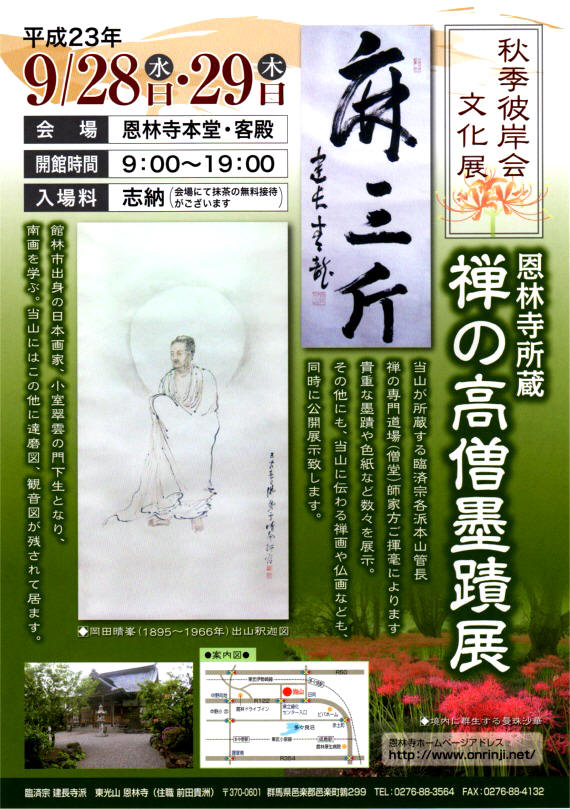 平成23年
9/28水日・29木日
会場 恩林寺本堂・客殿
開館時間 9：00～19：00
入場料 志納（会場にて抹茶の無料接待がございます）
秋季彼岸会
文化展
麻三斤
恩林寺所蔵
禅の高僧墨蹟展
当山が所蔵する臨済宗各派本山管長
禅の専門道場（僧堂）師家方ご揮毫によります
貴重な墨蹟や色紙など数々を展示。
その他にも、当山に伝わる禅画や仏画なども、
同時に公開展示致します。
館林市出身の日本画家、小室翠雲の門下生となり、
南画を学ぶ。当山にはこの他に達磨図、観音図が残されて居ます。
◆岡田晴峯（1895～1966年）出山釈迦図
●案内図●
R50
東武伊勢崎線
R122
当山
館林ドライブイン
県立緑化センター入口
多々良沼
ビバホーム
東武小泉線
館林厚生病院
R354
◆境内に群生する曼珠沙華
恩林寺ホームページアドレス
http://www.onrinji.net/
臨済宗 建長寺派 東光山 恩林寺（住職 前田貴洲） 〒370-0601 群馬県邑楽郡邑楽町鶉299 TEL：0276-88-3564 FAX：0276-88-4132